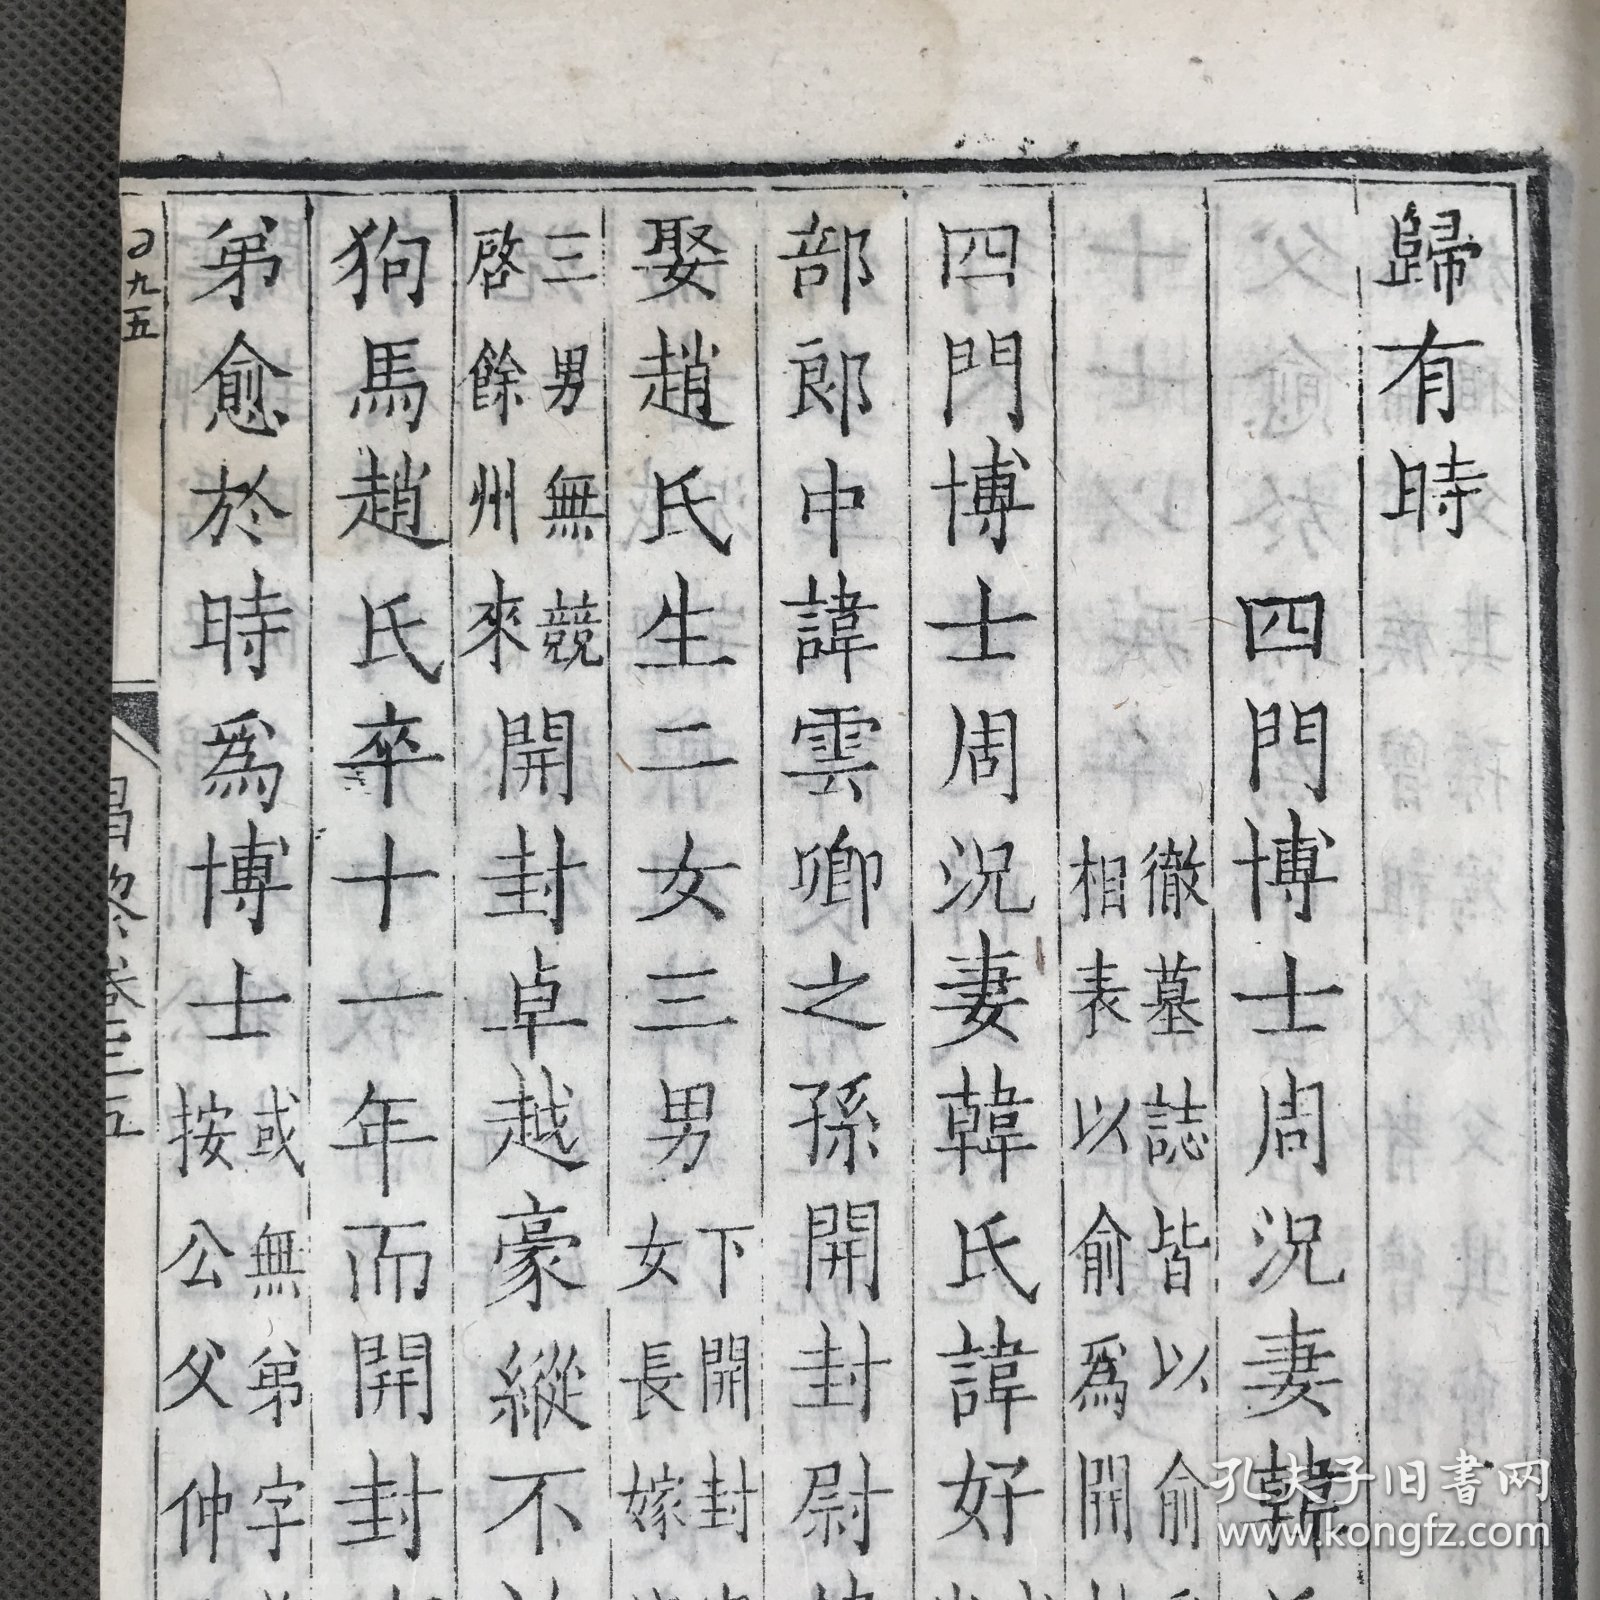 歸有時
四門博士周況妻韓
徹墓誌皆以俞
相表以俞爲開
四門博士周況妻韓氏諱好
部郎中諱雲卿之孫開封尉
娶趙氏生二女三男
下開封
女長嫁
三男無競
啓餘州來
開封卓越豪縱不
狗馬趙氏卒十一年而開封
弟愈於時爲博士
或無弟字
按公父仲
昌黎卷三五
孔夫子旧书网
www.kongfz.com